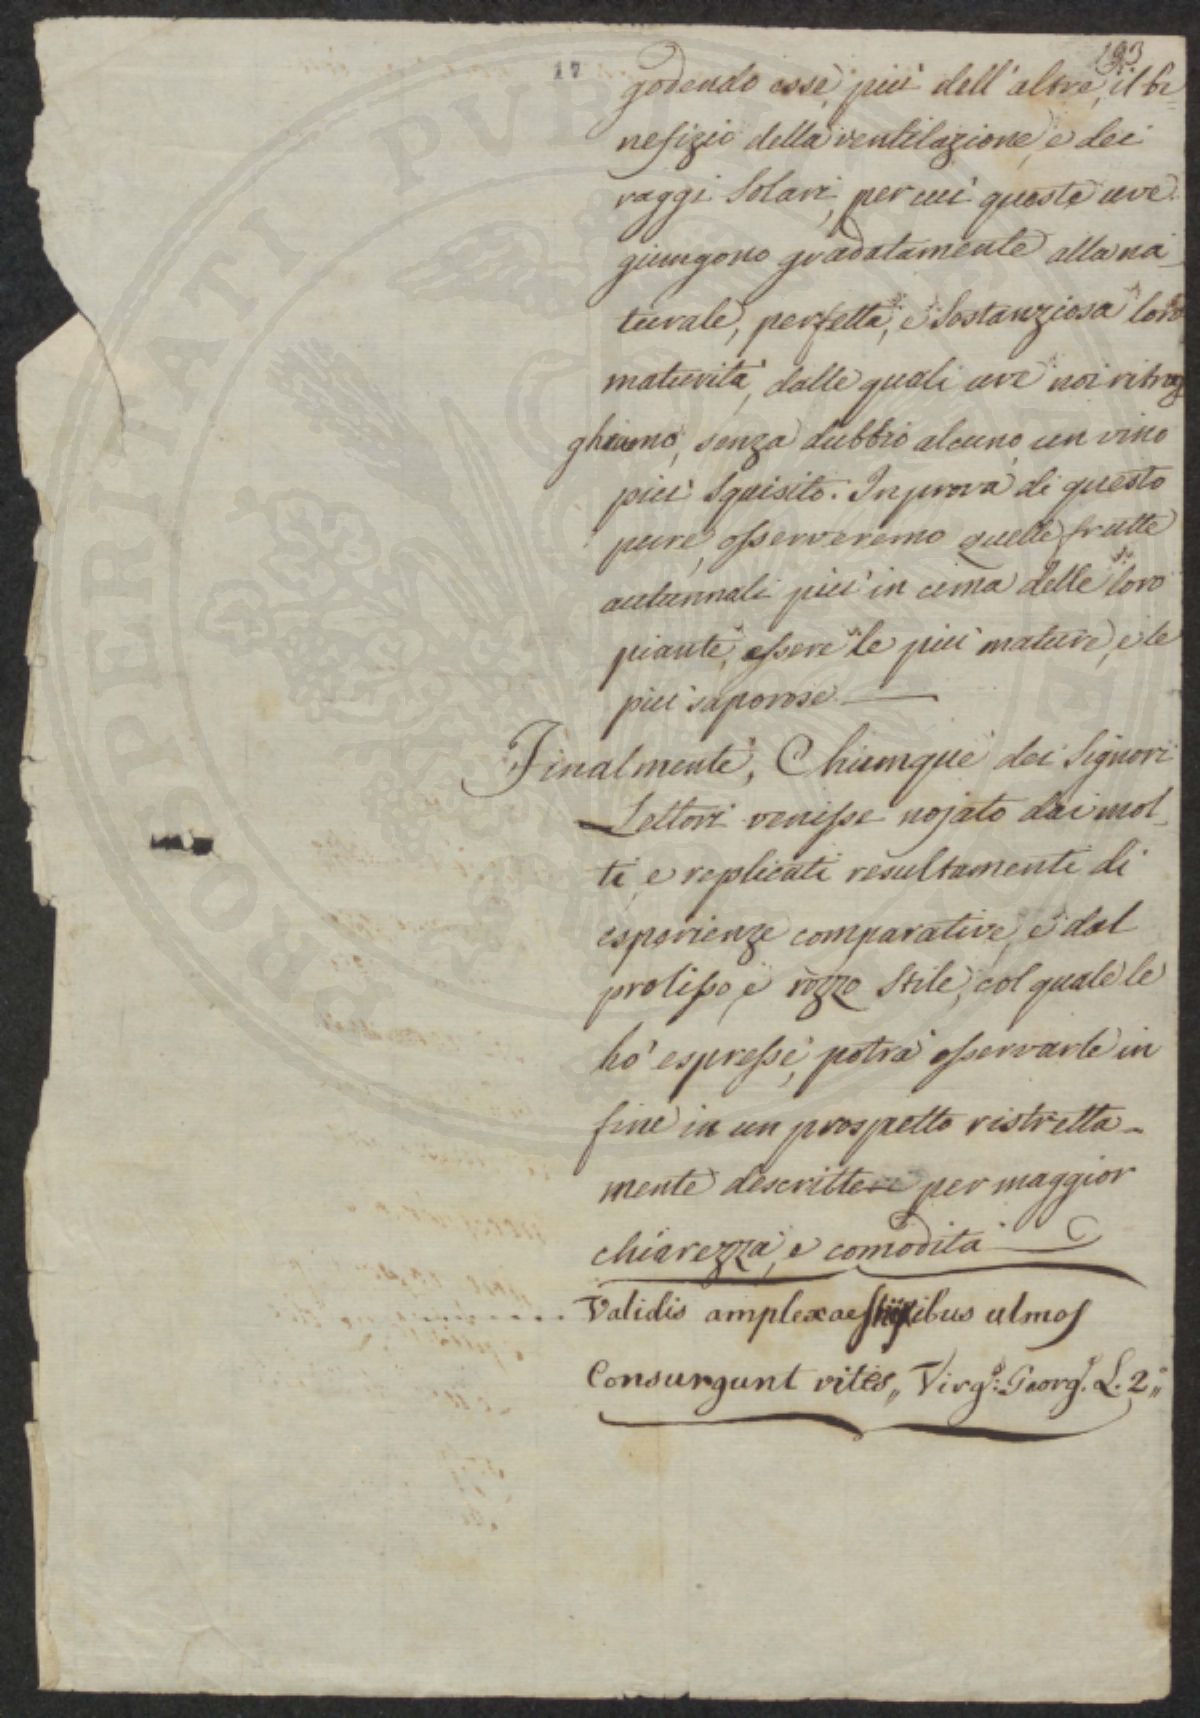 17
193
godendo esse, più dell' altre, il be=
nefizio della ventilazione, e dei
raggi Solari, per cui queste uve
giungono gradatamente alla na-
turale, perfetta, e Sostanziosa loro
maturità, dalle quali uve noi ritrag
ghiamo, senza dubbio alcuno, un vino
più Squisito. In prova di questo
pure, osserveremo quelle frutte
autunnali più in cima delle loro
piante, essere le più mature, e le
più saporose.
Finalmente, Chiunque dei Signori
Lettori venisse nojato dai mol-
ti, e replicati resultamenti di
esperienze comparative, e dal
prolisso, e rozzo Stile, col quale le
hò espresse, potrà osservarle in
fine in un prospetto ristretta-
mente descritte per maggior
chiarezza, e comodità
Validis amplexae stipibus ulmos
Consurgunt vites,, Virg: Georg. L. 2,,
PROSPERITATI PVBL